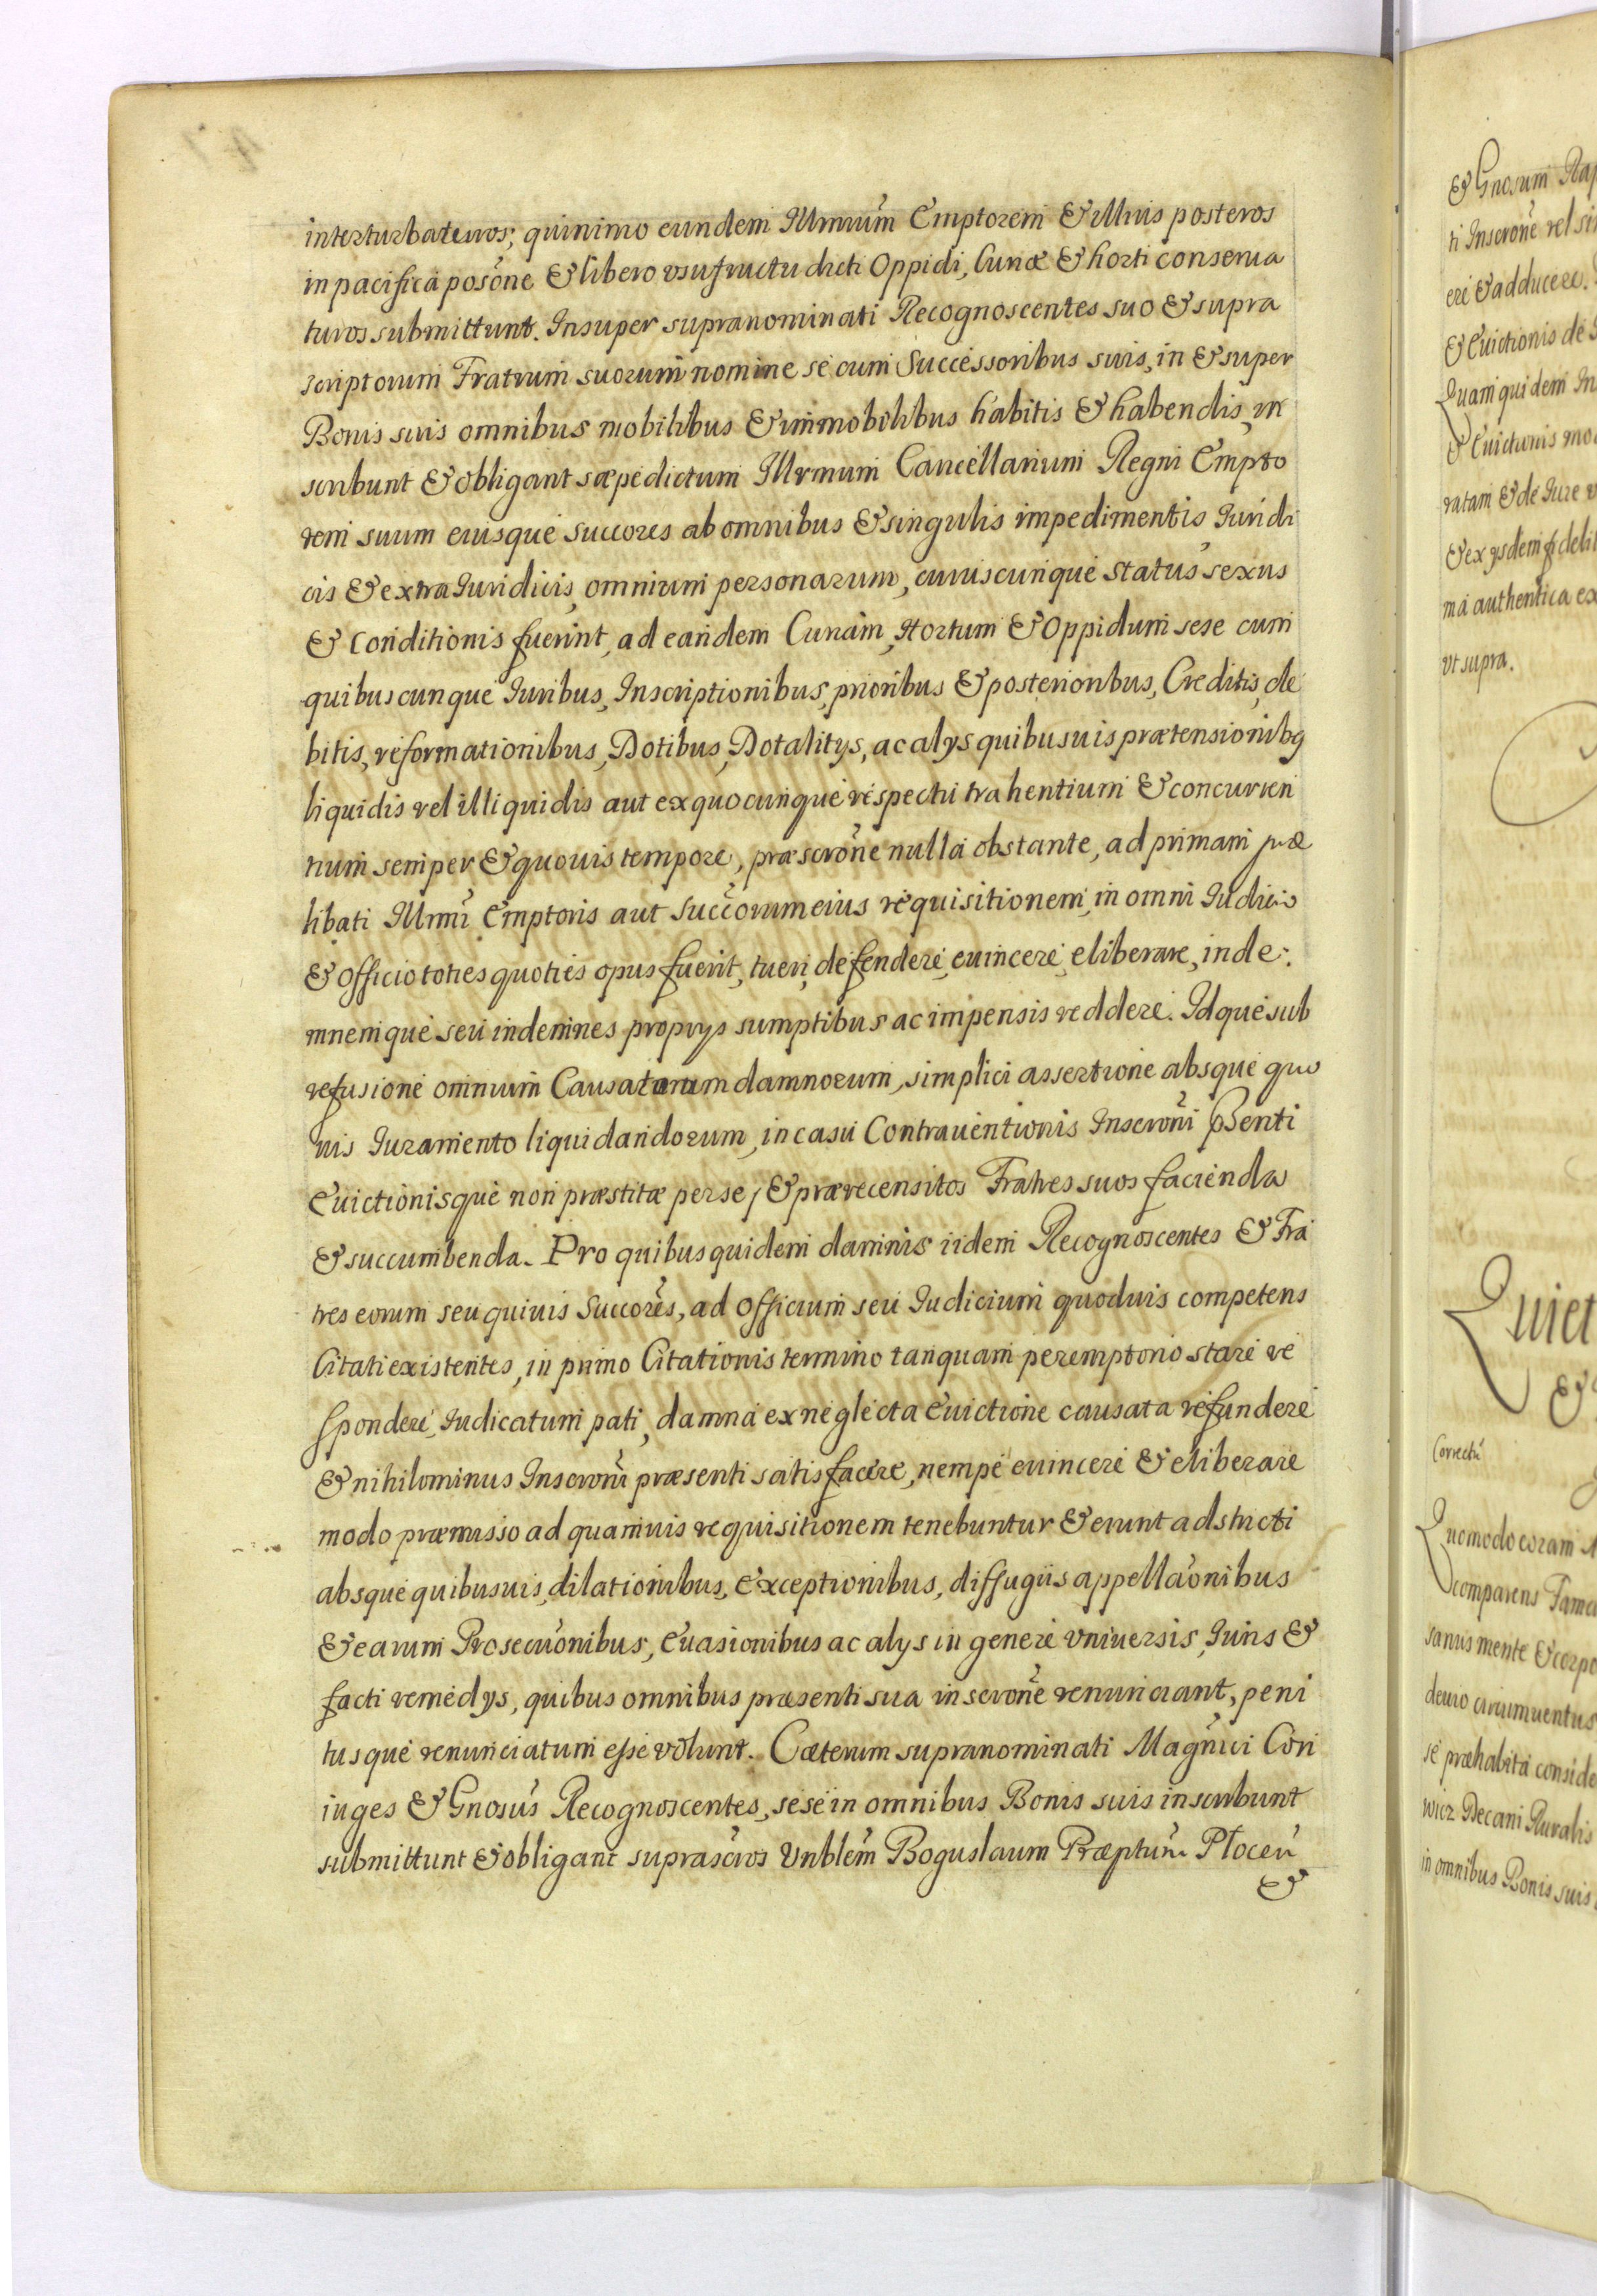 interturbaturos; quinimo eundem Illmum̃ Emptorem & illius posteros
in pacifica posõne & libero vsufructu dicti Oppidi, Curiæ & horti conserua
turos submittunt. Insuper supranominati Recognoscentes suo & supra
scriptorum Fratrum suorum nomine se cum Successoribus suis, in & super
Bonis suis omnibus mobilibus & immobilibus habitis & habendis, in
scribunt & obligant sæpedictum Illrmum Cancellarium Regni Empto
rem suum eiusque succores ab omnibus & singulis impedimentis Iuridi
cis & extra Iuridicis, omnium personarum, cuiuscunque status sexus
& conditionis fuerint, ad eandem Curiam, Hortum & Oppidum sese cum
quibuscunque Iuribus, Inscriptionibus, prioribus & posterioribus, Creditis, de
bitis, reformationibus, Dotibus, Dotalitys, ac alys quibusuis prætensionibq
liquidis vel illiquidis aut ex quocunque respectu trahentium & concurren
tium semper & quouis tempore, præscrõne nulla obstante, ad primam præ
libati Illmi Emptoris aut succ̃orum eius requisitionem, in omni Iudicio
& Officio toties quoties opus fuerit, tueri, defendere, euincere, eliberare, inde:
mnemque seu indemnes proprys sumptibus ac impensis reddere. Idque sub
refusione omnium Causatarum damnorum, simplici assertione absque quo
uis Iuramento liquidandorum, in casu Contrauentionis Inscrõni pñti
Euictionisque non præstitæ per se, & prærecensitos Fratres suos facienda
& succumbenda. Pro quibus quidem damnis iidem Recognoscentes & Fra
tres eorum seu quiuis Succorẽs, ad Officium seu Iudicium quoduis competens
Citati existentes, in primo Citationis termino tanquam peremptorio stare re
spondere, Iudicatum pati, damna ex neglecta Euictione causata refundere
& nihilominus Inscrõni præsenti satisfacere, nempe euincere & eliberare
modo præmisso ad quamuis requisitionem tenebuntur & erunt adstricti
absque quibusuis, dilationibus, Exceptionibus, diffugiis appellãonibus
& earum Prosecuõnibus, Euasionibus ac alys in genere vniuersis, Iuris &
facti remedys, quibus omnibus præsenti sua inscrõne renunciant, peni
tusque renunciatum esse volunt. Cæterum supranominati Magñici Con
iuges & Gnosus Recognoscentes, sese in omnibus Bonis suis inscribunt
submittunt & obligant suprascr̃os Vnblem̃ Boguslaum Præptum̃ Plocen̄
&
& Gnosum
ti Inscrone vel
ere & adducere.
& Euictionis de
Quam quidem In
& Euictionis
ratam & de Iure
& ex ysdem
ma authentica ex
vt supra.
Quiet
&
Correctũ
Quomodo coram
comparens
sanus mente & corpo
deuio circumuentus
se præhabita conside
wicz Decani Ruralis
in omnibus Bonis suis